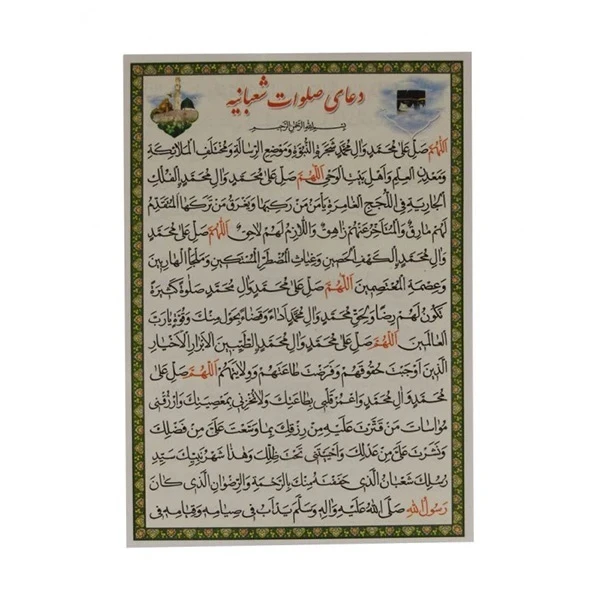 دعای صلوات شعبانیه
بسم الله الرحمن الرحیم
اَللّهُمَّ صَلِّ عَلى مُحَمَّدٍ وَالِ مُحَمَّدٍ شَجَرَةِ النُّبُوَّةِ وَمَوْضِعِ الرِّسالَةِ وَمُخْتَلَفِ الْمَلائِكَةِ
وَمَعْدِنِ الْعِلْمِ وَاَهْلِ بَيْتِ الْوَحْىِ اَللّهُمَّ صَلِّ عَلى مُحَمَّدٍ وَالِ مُحَمَّدٍ الْفُلْكِ
الْجارِيَةِ فِى اللُّجَجِ الْغامِرَةِ يَأْمَنُ مَنْ رَكِبَها وَيَغْرَقُ مَنْ تَرَكَهَا الْمُتَقَدِّمُ
لَهُمْ مارِقٌ وَالْمُتَاَخِّرُ عَنْهُمْ زاهِقٌ وَاللاّزِمُ لَهُمْ لاحِقٌ اَللّهُمَّ صَلِّ عَلى مُحَمَّدٍ
وَالِ مُحَمَّدٍ اِلْكَهْفِ الْحَصينِ وَغِياثِ الْمُضْطَرِّ الْمُسْتَكينِ وَمَلْجَأِ الْهارِبينَ
وَعِصْمَةِ الْمُعْتَصِمينَ اَللّهُمَّ صَلِّ عَلى مُحَمَّدٍ وَالِ مُحَمَّدٍ صَلوةً كَثيرَةً
تَكُونُ لَهُمْ رِضاً وَلِحَقِّ مُحَمَّدٍ وَالِ مُحَمَّدٍ اَداءً وَقَضاءً بِحَوْلٍ مِنْكَ وَقُوَّةٍ يا رَبَّ
الْعالَمينَ اَللّهُمَّ صَلِّ عَلى مُحَمَّدٍ وَالِ مُحَمَّدٍ الطَّيِّبينَ الاَبْرارِ الاَخْيارِ
الَّذينَ اَوْجَبْتَ حُقُوقَهُمْ وَفَرَضْتَ طاعَتَهُمْ وَوِلايَتَهُمْ اَللّهُمَّ صَلِّ عَلى
مُحَمَّدٍ وَالِ مُحَمَّدٍ وَاعْمُرْ قَلْبى بِطاعَتِكَ وَلا تُخْزِنى بِمَعْصِيَتِكَ وَارْزُقْنى
مُواساتَ مَنْ قَتَّرْتَ عَلَيْهِ مِنْ رِزْقِكَ بِما وَسَّعْتَ عَلَىَّ مِنْ فَضْلِكَ
وَنَشَرْتَ عَلَىَّ مِنْ عَدْلِكَ وَاَحْيَيْتَنى تَحْتَ ظِلِّكَ وَهذا شَهْرُ نَبِيِّكَ سَيِّدِ
رُسُلِكَ شَعْبانُ الَّذى حَفَفْتَهُ مِنْكَ بِالرَّحْمَةِ وَالرِّضْوانِ الَّذى كانَ
رَسُولُ اللهِ صَلَّى اللهُ عَلَيْهِ وَالِهِ وَسَلَّمَ يَدْاَبُ فى صِيامِهِ وَقِيامِهِ فى